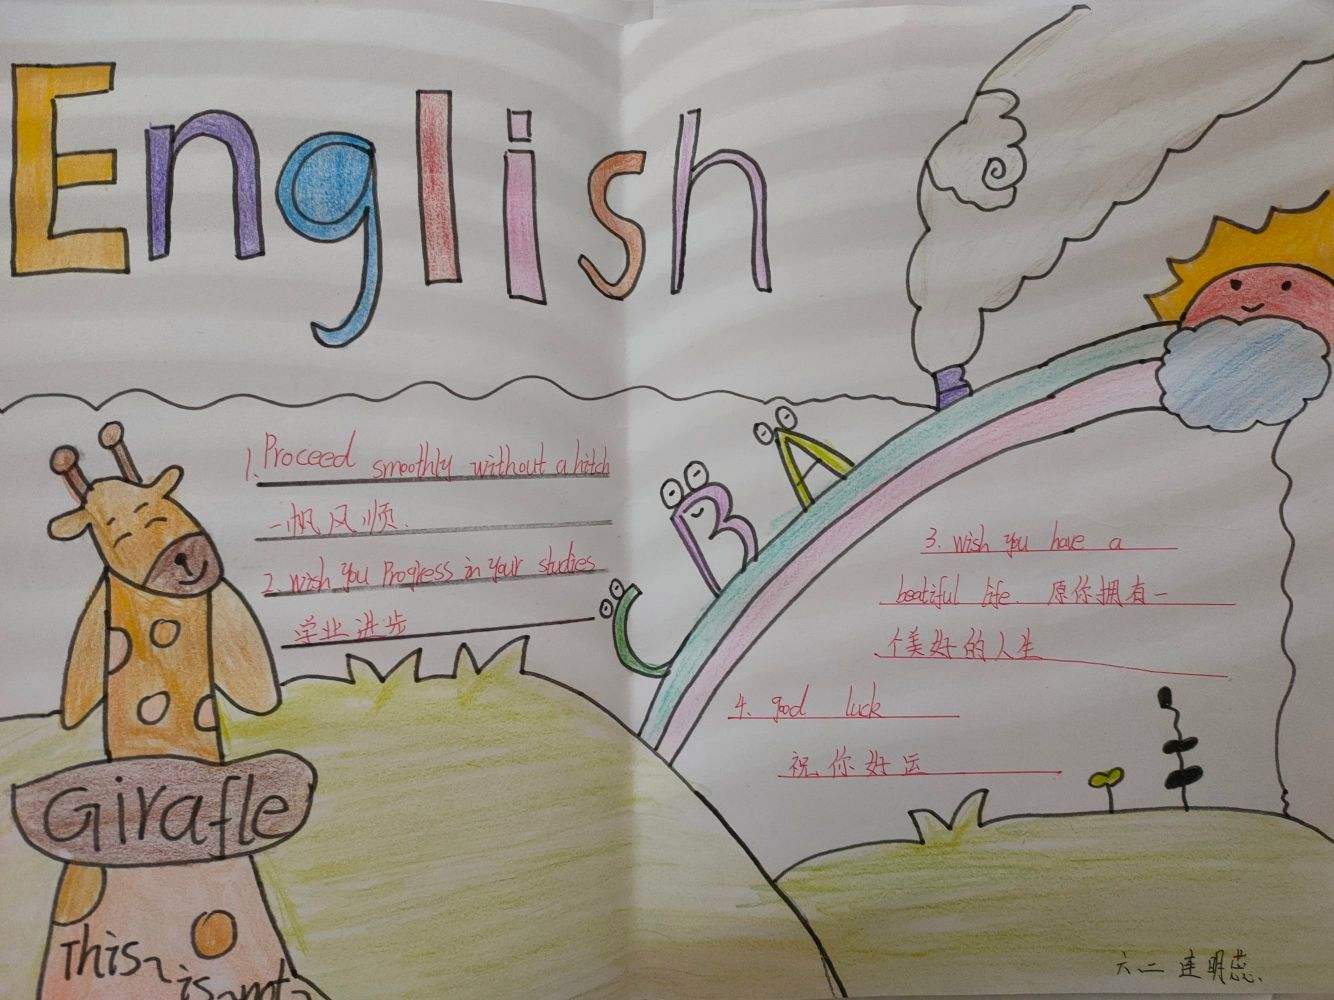 English
1. Proceed smoothly without a hitch
一帆风顺.
2. wish you Progress in your studies
学业进步
A
B
C
3. wish you have a
beatiful life. 原你拥有一
个美好的人生
4. good luck
祝你好运
Girafle
This
is not
六二 连明蕊